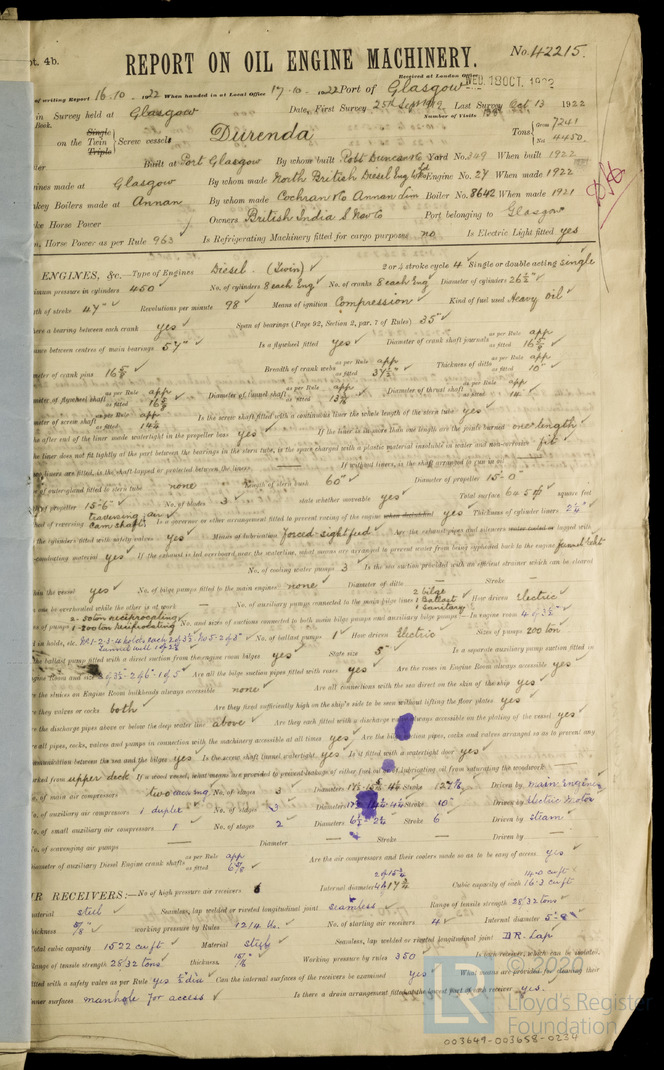 pt. 4b.
REPORT ON OIL ENGINE MACHINERY.
No. 42215.
Received at London Office WED. 18 OCT. 1922
of writing Report 16.10.1922 When handed in at Local Office 17.10.1922 Port of Glasgow
in Survey held at Glasgow Date, First Survey 25th Sept 1919 Last Survey Oct 13 1922
Book. Number of Visits
on the Single Twin Triple Screw vessel Durenda Tons Gross 7241 Net 4450
Built at Port Glasgow By whom built Robt Duncan & Co Yard No. 349 When built 1922
ines made at Glasgow By whom made North British Diesel Eng Wks Ltd Engine No. 27 When made 1922
key Boilers made at Annan By whom made Cochran & Co Annan Lim Boiler No. 8642 When made 1921
ke Horse Power Owners British India S Nav Co Port belonging to Glasgow
n. Horse Power as per Rule 963 Is Refrigerating Machinery fitted for cargo purposes no Is Electric Light fitted yes
ENGINES, &c.—Type of Engines Diesel (Twin) 2 or 4 stroke cycle 4 Single or double acting single
imum pressure in cylinders 450 No. of cylinders 8 each Eng No. of cranks 8 each Eng Diameter of cylinders 26½"
th of stroke 47" Revolutions per minute 98 Means of ignition Compression Kind of fuel used Heavy oil
ere a bearing between each crank yes Span of bearings (Page 92, Section 2, par. 7 of Rules) 35"
ance between centres of main bearings 57" Is a flywheel fitted yes Diameter of crank shaft journals as per Rule app as fitted 16⅝
meter of crank pins 16⅝ Breadth of crank webs as per Rule app as fitted 37½" Thickness of ditto as per Rule app as fitted 10"
meter of flywheel shaft as per Rule app as fitted 16⅝ Diameter of tunnel shaft as per Rule app as fitted Diameter of thrust shaft as per Rule app as fitted 14
meter of screw shaft as per Rule app as fitted 14¼ Is the screw shaft fitted with a continuous liner the whole length of the stern tube yes
he after end of the liner made watertight in the propeller boss yes If the liner is in more than one length are the joints burned one length
he liner does not fit tightly at the part between the bearings in the stern tube, is the space charged with a plastic material insoluble in water and non-corrosive fit
none Length of stern bush 60" Diameter of propeller 15'-0"
of propeller 15'-6" No. of blades 3 state whether moveable yes Total surface 64.5 square feet
of reversing traversing cam shaft Is a governor or other arrangement fitted to prevent racing of the engine yes Thickness of cylinder liners
the cylinders fitted with safety valves yes Means of lubrication forced & sight feed Are the exhaust pipes and silencers water cooled or lagged with
conducting material yes If the exhaust is led overboard near the waterline, what means are arranged to prevent water from being syphoned back to the engine funnel exht
No. of cooling water pumps 3 Is the sea suction provided with an efficient strainer which can be cleared
hin the vessel yes No. of bilge pumps fitted to the main engines none Diameter of ditto Stroke
can be overhauled while the other is at work — No. of auxiliary pumps connected to the main bilge lines 2 bilge 1 Ballast 1 sanitary How driven Electric
of pumps 2-50 ton reciprocating 1-200 ton Reciprocating No. and sizes of suctions connected to both main bilge pumps and auxiliary bilge pumps:—In engine room 4 of 3½"
No. of ballast pumps 1 How driven Electric Sizes of pumps 200 ton
the ballast pump fitted with a direct suction from the engine room bilges yes State size 5" Is a separate auxiliary pump suction fitted in
Are all the bilge suction pipes fitted with roses yes Are the roses in Engine Room always accessible yes
the sluices on Engine Room bulkheads always accessible none Are all connections with the sea direct on the skin of the ship yes
they valves or cocks both Are they fixed sufficiently high on the ship's side to be seen without lifting the floor plates yes
the discharge pipes above or below the deep water line above Are they each fitted with a discharge always accessible on the plating of the vessel yes
all pipes, cocks, valves and pumps in connection with the machinery accessible at all times yes Are the bilge pipes, cocks and valves arranged so as to prevent any
ommunication between the sea and the bilges yes Is the screw shaft tunnel watertight yes Is it fitted with a watertight door yes
rked from upper deck If a wood vessel, what means are provided to prevent leakage of either fuel oil or lubricating oil from saturating the woodwork —
o. of main air compressors two No. of stages 3 Diameters Stroke Driven by Main Engines
o. of auxiliary air compressors 1 duplex No. of stages 3 Diameters Stroke 10" Driven by Electric Motor
o. of small auxiliary air compressors 1 No. of stages 2 Diameters Stroke 6" Driven by Steam
o. of scavenging air pumps — Diameter Stroke Driven by —
diameter of auxiliary Diesel Engine crank shafts as per Rule app as fitted Are the air compressors and their coolers made so as to be easy of access yes
IR RECEIVERS:—No. of high pressure air receivers 6 Internal diameter Cubic capacity of each 14.0 cuft 16.3 cuft
aterial steel Seamless, lap welded or riveted longitudinal joint seamless Range of tensile strength 28/32 tons
thickness working pressure by Rules No. of starting air receivers 4 Internal diameter 5'-8"
Total cubic capacity 1522 cu ft Material steel Seamless, lap welded or riveted longitudinal joint DR. Lap
Range of tensile strength 28/32 tons thickness Working pressure by rules 350 Is each receiver, which can be isolated,
itted with a safety valve as per Rule yes Can the internal surfaces of the receivers be examined yes What means are provided for cleaning their
nner surfaces manhole for access Is there a drain arrangement fitted at the lowest part of each receiver yes.
LR
© 2020
Lloyd's Register
Foundation
003649-003658-0234